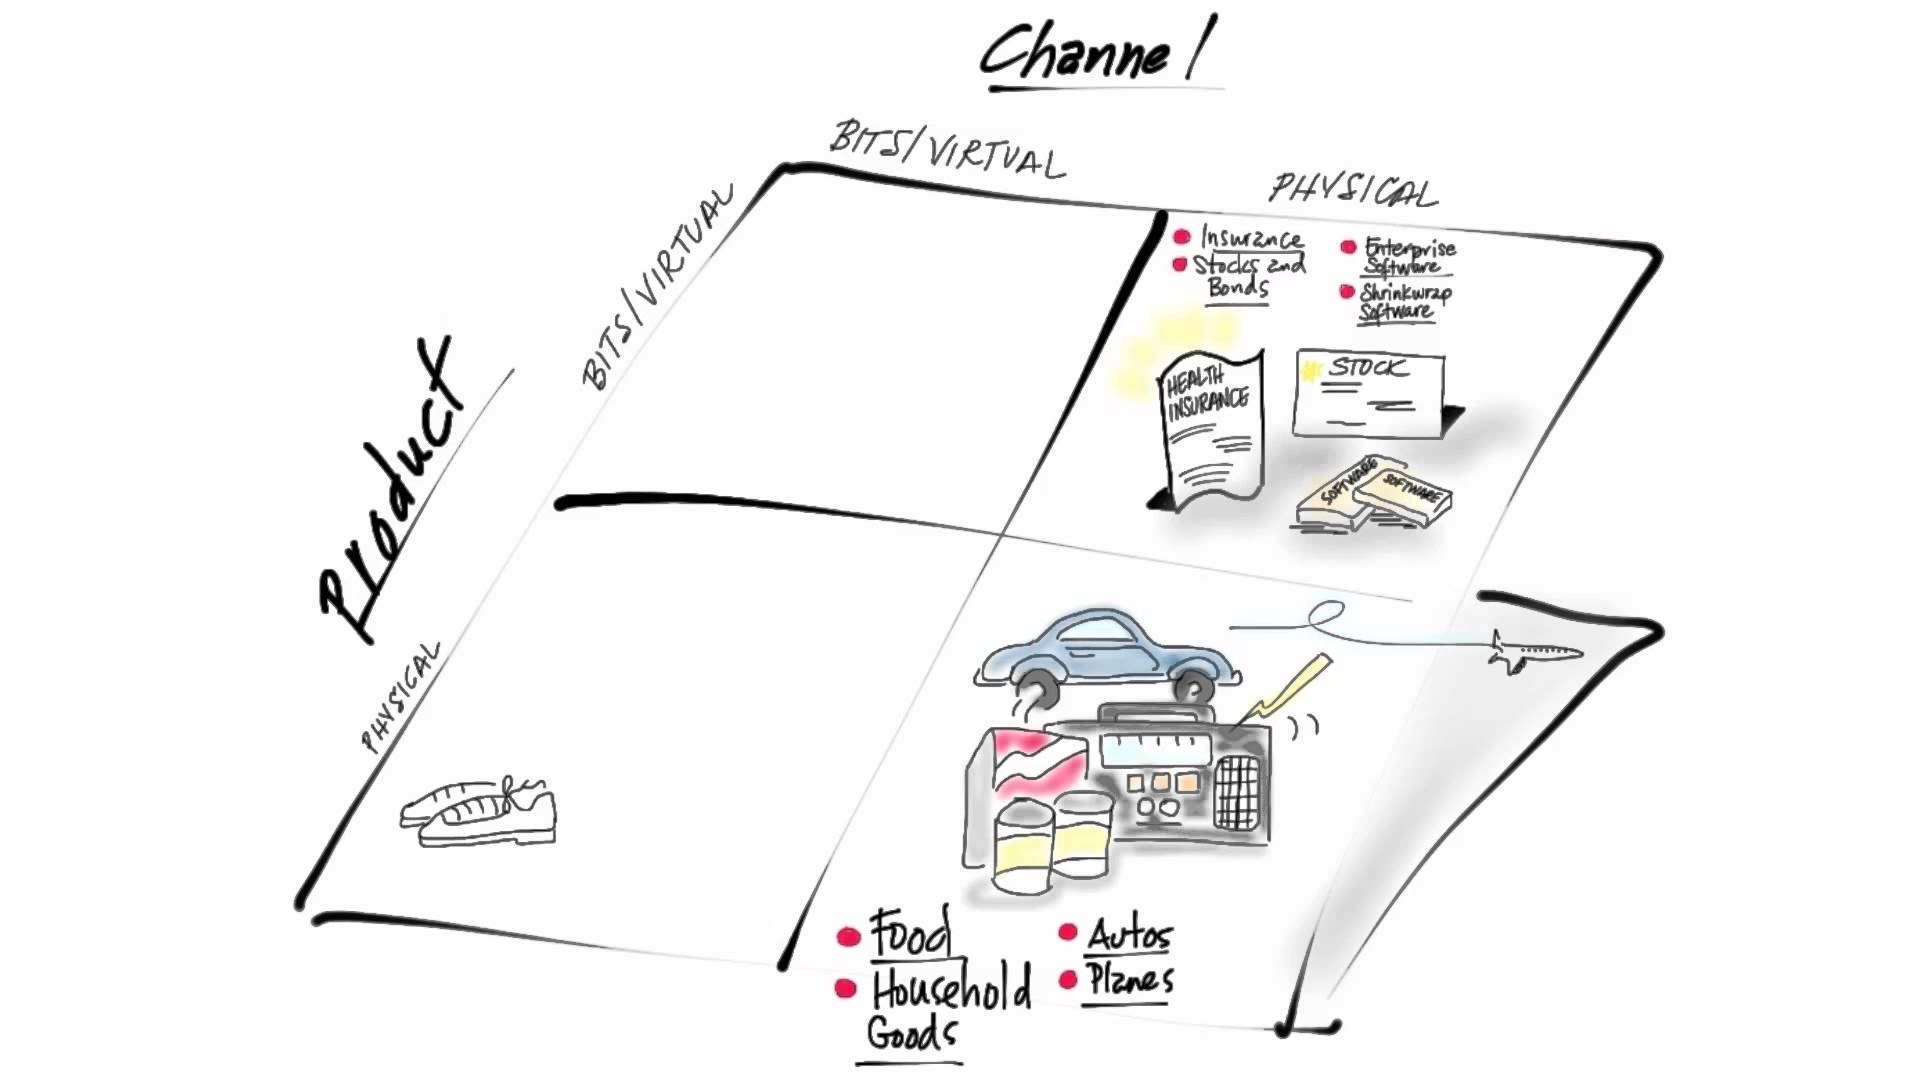 Channel
BITS/VIRTUAL
PHYSICAL
Product
BITS/VIRTUAL
PHYSICAL
Insurance
Stocks and
Bonds
Enterprise
Software
Shrinkwrap
Software
HEALTH
INSURANCE
STOCK
SOFTWARE
SOFTWARE
Food
Household
Goods
Autos
Planes